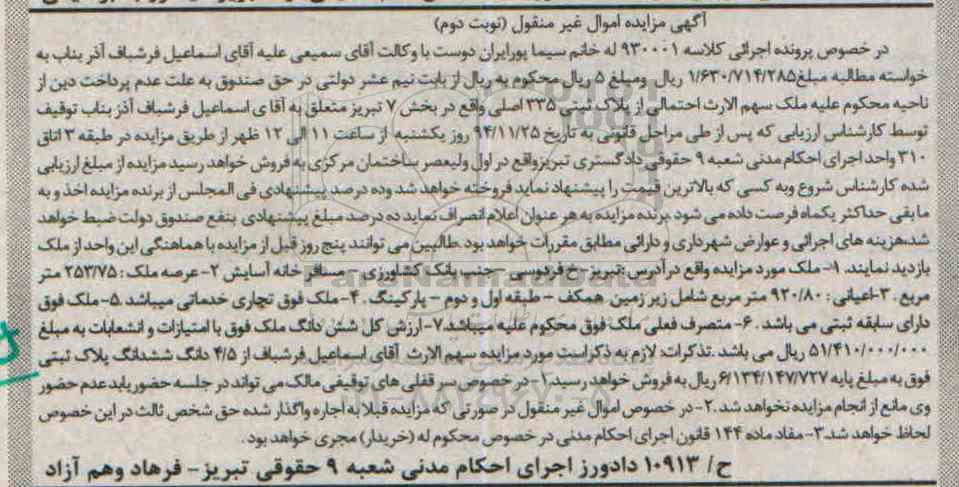 آگهی مزایده اموال غیر منقول (نوبت دوم)
در خصوص پرونده اجرائی کلاسه ۹۳۰۰۰۱ له خانم سیما پورایران دوست با وکالت آقای سمیعی علیه آقای اسماعیل فرشباف آذر بناب به
خواسته مطالبه مبلغ ۱/۶۳۰/۷۱۴/۲۸۵ ریال ومبلغ ۵ ریال محکوم به ریال از بابت نیم عشر دولتی در حق صندوق به علت عدم پرداخت دین از
ناحیه محکوم علیه ملک سهم الارث احتمالی از پلاک ثبتی ۳۳۵ اصلی واقع در بخش ۷ تبریز متعلق به آقا ی اسماعیل فرشباف آذر بناب توقیف
توسط کارشناس ارزیابی که پس از طی مراحل قانونی به تاریخ ۹۴/۱۱/۲۵ روز یکشنبه از ساعت ۱۱ الی ۱۲ ظهر از طریق مزایده در طبقه ۳ اتاق
۳۱۰ واحد اجرای احکام مدنی شعبه ۹ حقوقی دادگستری تبریز واقع در اول ولیعصر ساختمان مرکزی به فروش خواهد رسید مزایده از مبلغ ارزیابی
شده کارشناس شروع وبه کسی که بالاترین قیمت را پیشنهاد نماید فروخته خواهد شد وده درصد پیشنهادی فی المجلس از برنده مزایده اخذ و به
ما بقی حداکثر یکماه فرصت داده می شود .برنده مزایده به هر عنوان اعلام انصراف نماید ده درصد مبلغ پیشنهادی بنفع صندوق دولت ضبط خواهد
شد.هزینه های اجرائی و عوارض شهرداری و دارائی مطابق مقررات خواهد بود .طالبین می توانند پنج روز قبل از مزایده با هماهنگی این واحد از ملک
بازدید نمایند. ۱-ملک مورد مزایده واقع در آدرس :تبریز - خ فردوسی -جنب بانک کشاورزی - مسافر خانه آسایش ۲- عرصه ملک : ۲۵۳/۷۵ متر
مربع . ۳-اعیانی : ۹۲۰/۸۰ متر مربع شامل زیر زمین همکف - طبقه اول و دوم - پارکینگ . ۴- ملک فوق تجاری خدماتی میباشد .۵-ملک فوق
دارای سابقه ثبتی می باشد . ۶- متصرف فعلی ملک فوق محکوم علیه میباشد.۷-ارزش کل شش دانگ ملک فوق با امتیازات و انشعابات به مبلغ
۵۱/۴۱۰/۰۰۰/۰۰۰ ریال می باشد .تذکرات: لازم به ذکراست مورد مزایده سهم الارث آقای اسماعیل فرشباف از ۴/۵ دانگ ششدانگ پلاک ثبتی
فوق به مبلغ پایه ۶/۱۳۴/۱۴۷/۷۲۷ ریال به فروش خواهد رسید.۱- در خصوص سر قفلی های توقیفی مالک می تواند در جلسه حضور یابد عدم حضور
وی مانع از انجام مزایده نخواهد شد .۲- در خصوص اموال غیر منقول در صورتی که مزایده قبلا به اجاره واگذار شده حق شخص ثالث در این خصوص
لحاظ خواهد شد.۳- مفاد ماده ۱۴۴ قانون اجرای احکام مدنی در خصوص محکوم له (خریدار) مجری خواهد بود .
ح/ ۱۰۹۱۳ دادورز اجرای احکام مدنی شعبه ۹ حقوقی تبریز- فرهاد وهم آزاد
ParsNamadData
۰۲۱-۸۸۳۴۹۶۷۰-۵